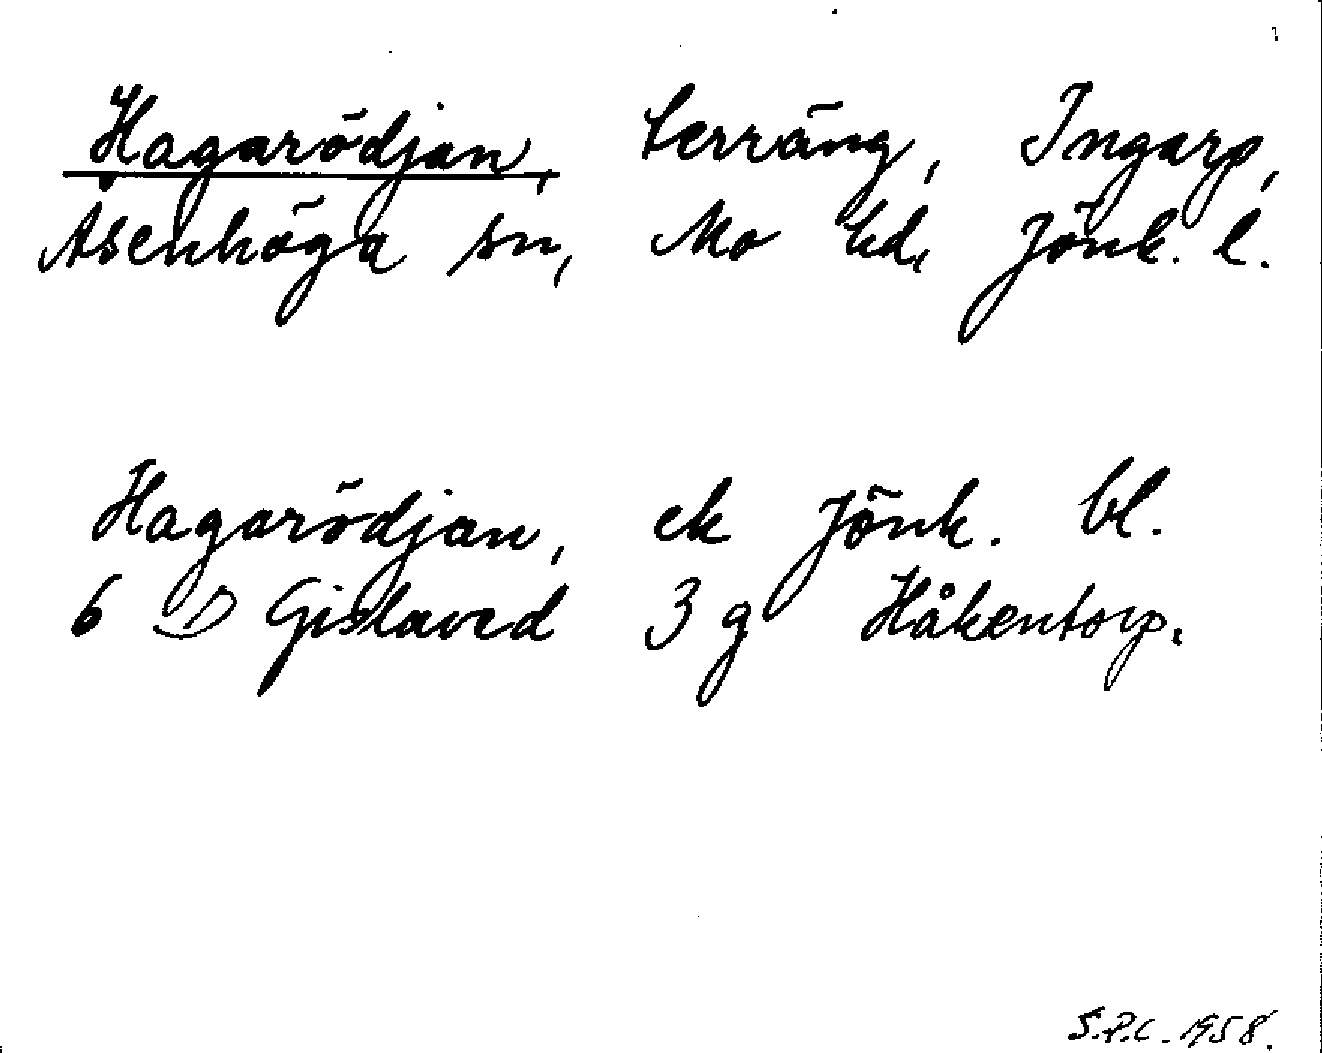 Hagarödjan, terräng, Ingarp,
Åsenhöga sn, Mo hd, Jönk. l.
Hagarödjan, ek Jönk. bl.
6 D Gislaved 3 g Håkentorp.
S.P.C. 1958.